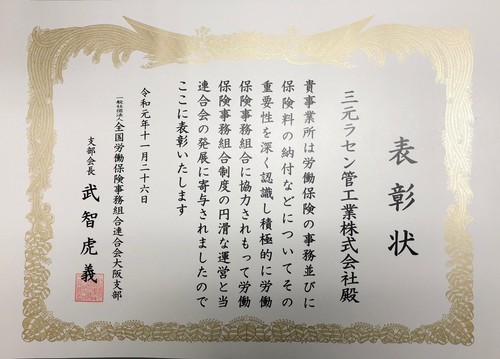 表彰状
三元ラセン管工業株式会社殿
貴事業所は労働保険の事務並びに
保険料の納付などについてその
重要性を深く認識し積極的に労働
保険事務組合に協力されもって労働
保険事務組合制度の円滑な運営と当
連合会の発展に寄与されましたので
ここに表彰いたします
令和元年十一月二十六日
一般社団法人全国労働保険事務組合連合会大阪支部
支部会長 武智虎義